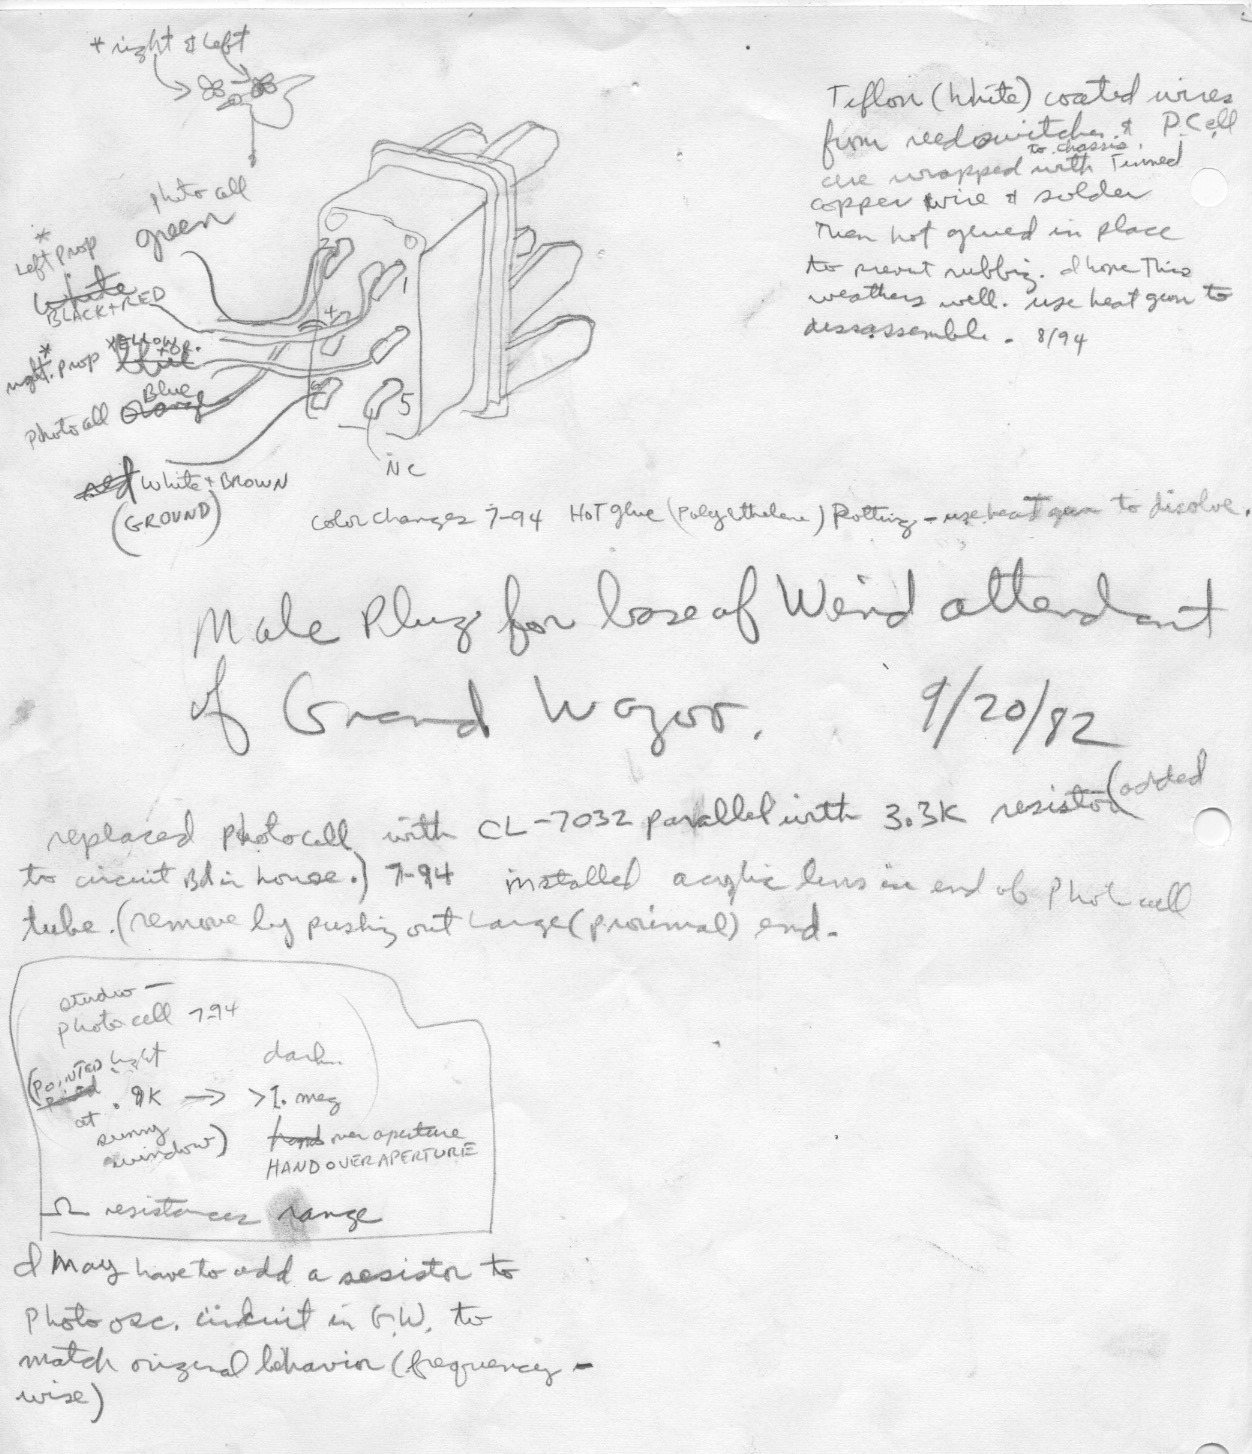 * right & left
photo cell
green
*
Left prop
white
BLACK + RED
*
right. prop YELLOW + OR.
blue
Blue
photo cell orange
red White + BROWN
(GROUND)
2
1
4
6
5
NC
Teflon (white) coated wires
from reed switches & P. Cell
to chassis.
are wrapped with Tinned
copper wire & solder
Then hot glued in place
to prevent rubbing. I hope This
weathers well. use heat gun to
dissassemble. 8/94
color changes 7-94 HOT glue (Polyethelene) Potting - use heat gun to disolve.
Male Plug for base of Wind attendant
of Grand Wazoo. 9/20/82
replaced photocell with CL-7032 parallel with 3.3K resistor (added
to circuit Bd in house.) 7-94 installed acrylic lens in end of Photocell
tube. (remove by pushing out Large (proximal) end.
studio -
photocell 7-94
light dark
(POINTED
at .9K → >1. meg
sunny
window) hand over aperture
HAND OVER APERTURE
Ω resistances range
I May have to add a resistor to
Photo osc. circuit in G.W. to
match original behavior (frequency -
wise)